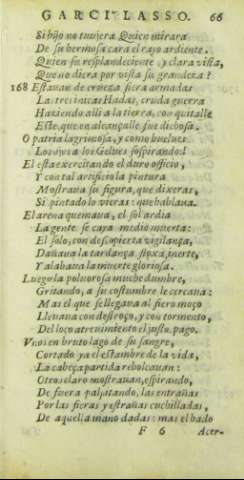 GARCI LASSO. 66
Si hijo no tuuiera Quien mirara
De su hermosa cara el rayo ardiente.
Quien su resplandeciente, y clara vista,
Que no diera por vista su grandeza?
168 Estauan de crueza fiera armadas
Las tres inicas Hadas, cruda guerra
Haziendo alli a la tierra, con quitalle
Este, que en alcançalle fue dichosa.
O patria lagrimosa, y como buelues
Los ojos a los Gelues sospirando!
El esta exercitando el duro officio,
Y con tal artificio la pintura
Mostraua su figura, que dixeras,
Si pintado lo vieras: que hablaua.
El arena quemaua, el sol ardia
La gente se caya medio muerta:
El solo, con despierta vigilança,
Dañaua la tardança floxa, inerte,
Y alabaua la muerte gloriosa.
Luego la poluorosa muchedumbre,
Gritando, a su costumbre le cercaua:
Mas el que se llegaua al fiero moço
Lleuaua con destroço, y con tormento,
Del loco atreuimiento el justo pago.
Vnos en bruto lago de su sangre,
Cortado ya el estambre de la vida,
La cabeça partida rebolcauan:
Otros claro mostrauan, espirando,
De fuera palpitando, las entrañas
Por las fieras y estrañas cuchilladas,
De aquella mano dadas: mas el hado
F 6 Acer-